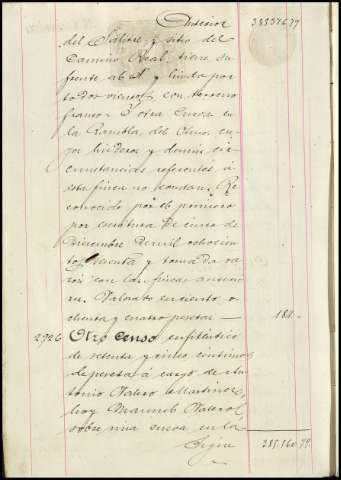 Anterior 385376,79
del Salitre y sitio del
Camino Real tiene su
frente al N y linda por
todos vientos con terreno
franco. Y otra Cueva en
la Rambla del Chino, cu-
yos linderos y demás cir-
cunstancias referentes á
esta finca no constan. Re-
conocido por el primero
por escritura de cinco de
Diciembre de mil ochocien-
tos setenta y tomada ra-
zón con las fincas anterio-
res. Valorado en ciento o-
chenta y cuatro pesetas — 184.
2926 Otro censo enfitéutico
de setenta y cinco centimos
de peseta á cargo de An-
tonio Valero Martinez
hoy Manuel Valero
sobre una cueva en la
Sigue 385.560,79